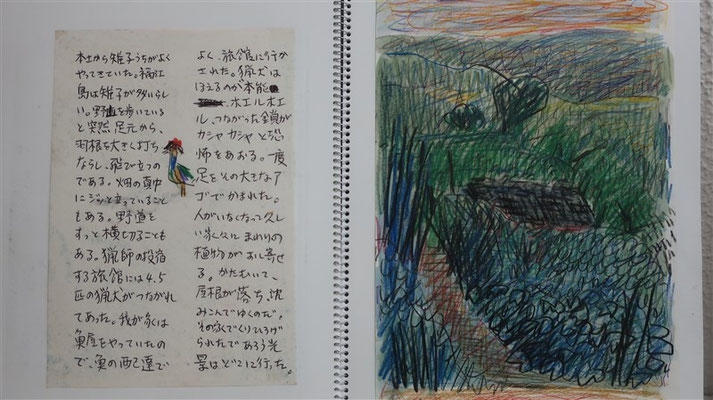 本土から雉子うちがよく
やってきていた。福江
島は雉子が多いらし
い。野道を歩いている
と突然足元から、
羽根を大きく打ち
ならし、飛び立つの
である。畑の真中
にジッと立っていること
もある。野道を
すっと横切ることも
ある。猟師の投宿
する旅館には4.5
匹の猟犬がつながれ
てあった。我が家は
魚屋をやっていたの
で、魚の配達で
よく、旅館に行か
された。猟犬は
ほえるのが本能
ホエルホエ
ル、つながった鎖が
カシャカシャと恐
怖をあおる。一度
足をその大きなア
ゴでかまれた。
人がいなくなって久し
い家々に まわりの
植物がおし寄せ
る。かたむいて、
屋根が落ち、沈
みこんでゆくのだ。
その家でくりひろげ
られたであろう光
景はどこに行った。